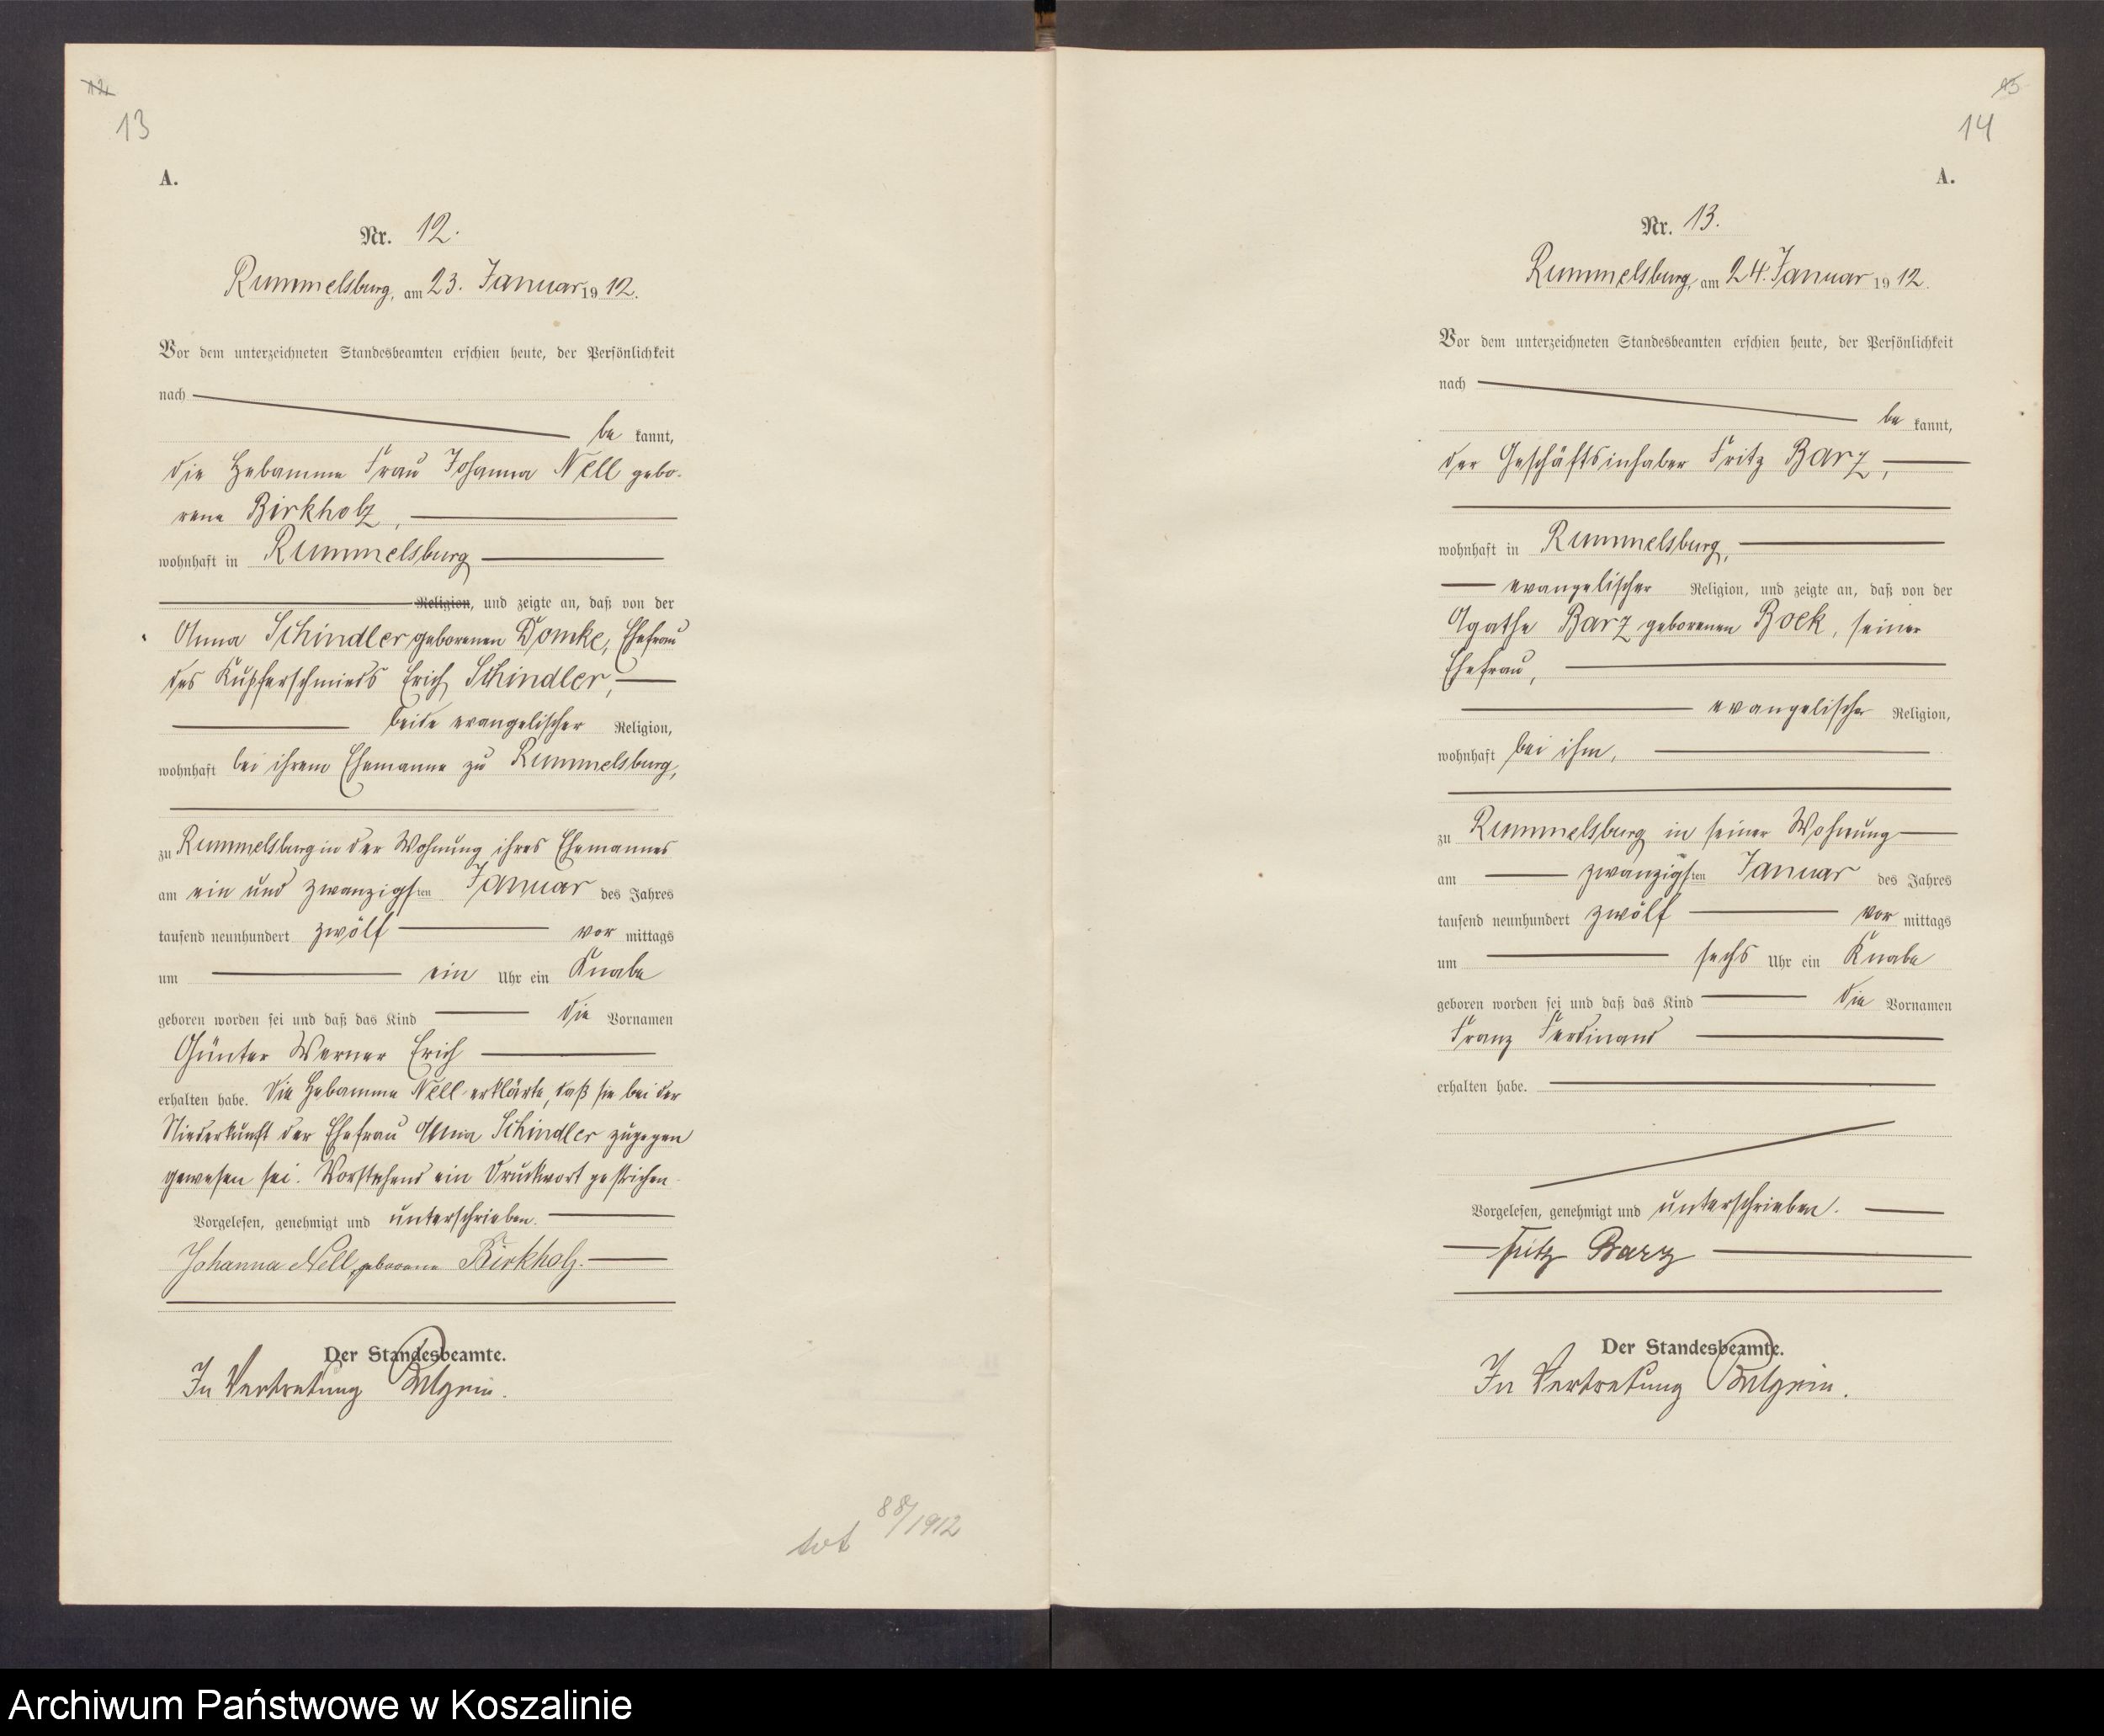 12
13
A.
Nr. 12.
Rummelsburg, am 23. Januar 1912.
Vor dem unterzeichneten Standesbeamten erschien heute, der Persönlichkeit
nach
bekannt,
die Hebamme Frau Johanna Nell gebo-
rene Birkholz,
wohnhaft in Rummelsburg
Religion, und zeigte an, daß von der
Anna Schindler geborenen Domke, Ehefrau
des Kupferschmieds Erich Schindler,
beide evangelischer Religion,
wohnhaft bei ihrem Ehemanne zu Rummelsburg,
zu Rummelsburg in der Wohnung ihres Ehemannes
am ein und zwanzigsten Januar des Jahres
tausend neunhundert zwölf vormittags
um ein Uhr ein Knabe
geboren worden sei und daß das Kind die Vornamen
Günter Werner Erich
erhalten habe. Die Hebamme Nell erklärte, daß sie bei der
Niederkunft der Ehefrau Anna Schindler zugegen
gewesen sei. Vorstehend ein Druckwort gestrichen.
Vorgelesen, genehmigt und unterschrieben.
Johanna Nell, geborene Birkholz.
Der Standesbeamte.
In Vertretung
tot 88/1912
13
14
A.
Nr. 13.
Rummelsburg, am 24. Januar 1912.
Vor dem unterzeichneten Standesbeamten erschien heute, der Persönlichkeit
nach
bekannt,
der Geschäftsinhaber Fritz Barz,
wohnhaft in Rummelsburg,
evangelischer Religion, und zeigte an, daß von der
Agathe Barz geborenen Bock, seiner
Ehefrau,
evangelischer Religion,
wohnhaft bei ihm,
zu Rummelsburg in seiner Wohnung
am zwanzigsten Januar des Jahres
tausend neunhundert zwölf vormittags
um sechs Uhr ein Knabe
geboren worden sei und daß das Kind die Vornamen
Franz Ferdinand
erhalten habe.
Vorgelesen, genehmigt und unterschrieben.
Fritz Barz
Der Standesbeamte.
In Vertretung
Archiwum Państwowe w Koszalinie